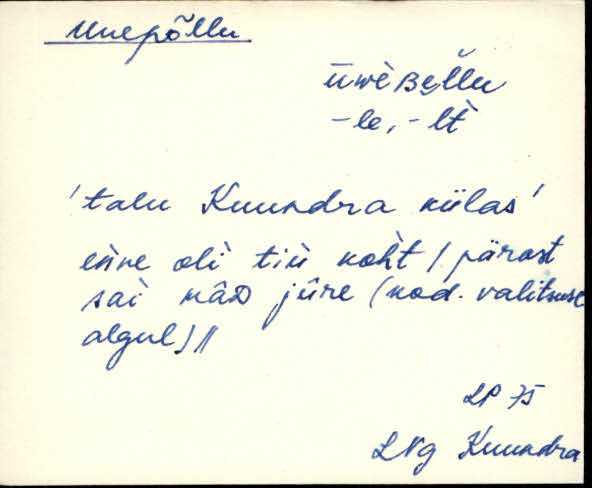 Uuepõllu
ūwèʙe̮l̆lu
-le, -lt̀
'talu Kuundra külas'
enne olì tiu̇ koh̀t / pärast
saì nâᴅ jûre (nod. valitsuse
algul) //
LP 75
LNg Kuundra